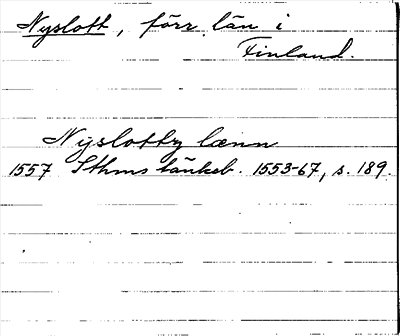 Nyslott, förr län i
Finland.
Nyslotty lænn
1557 Sthms tänkeb. 1553-67, s. 189.